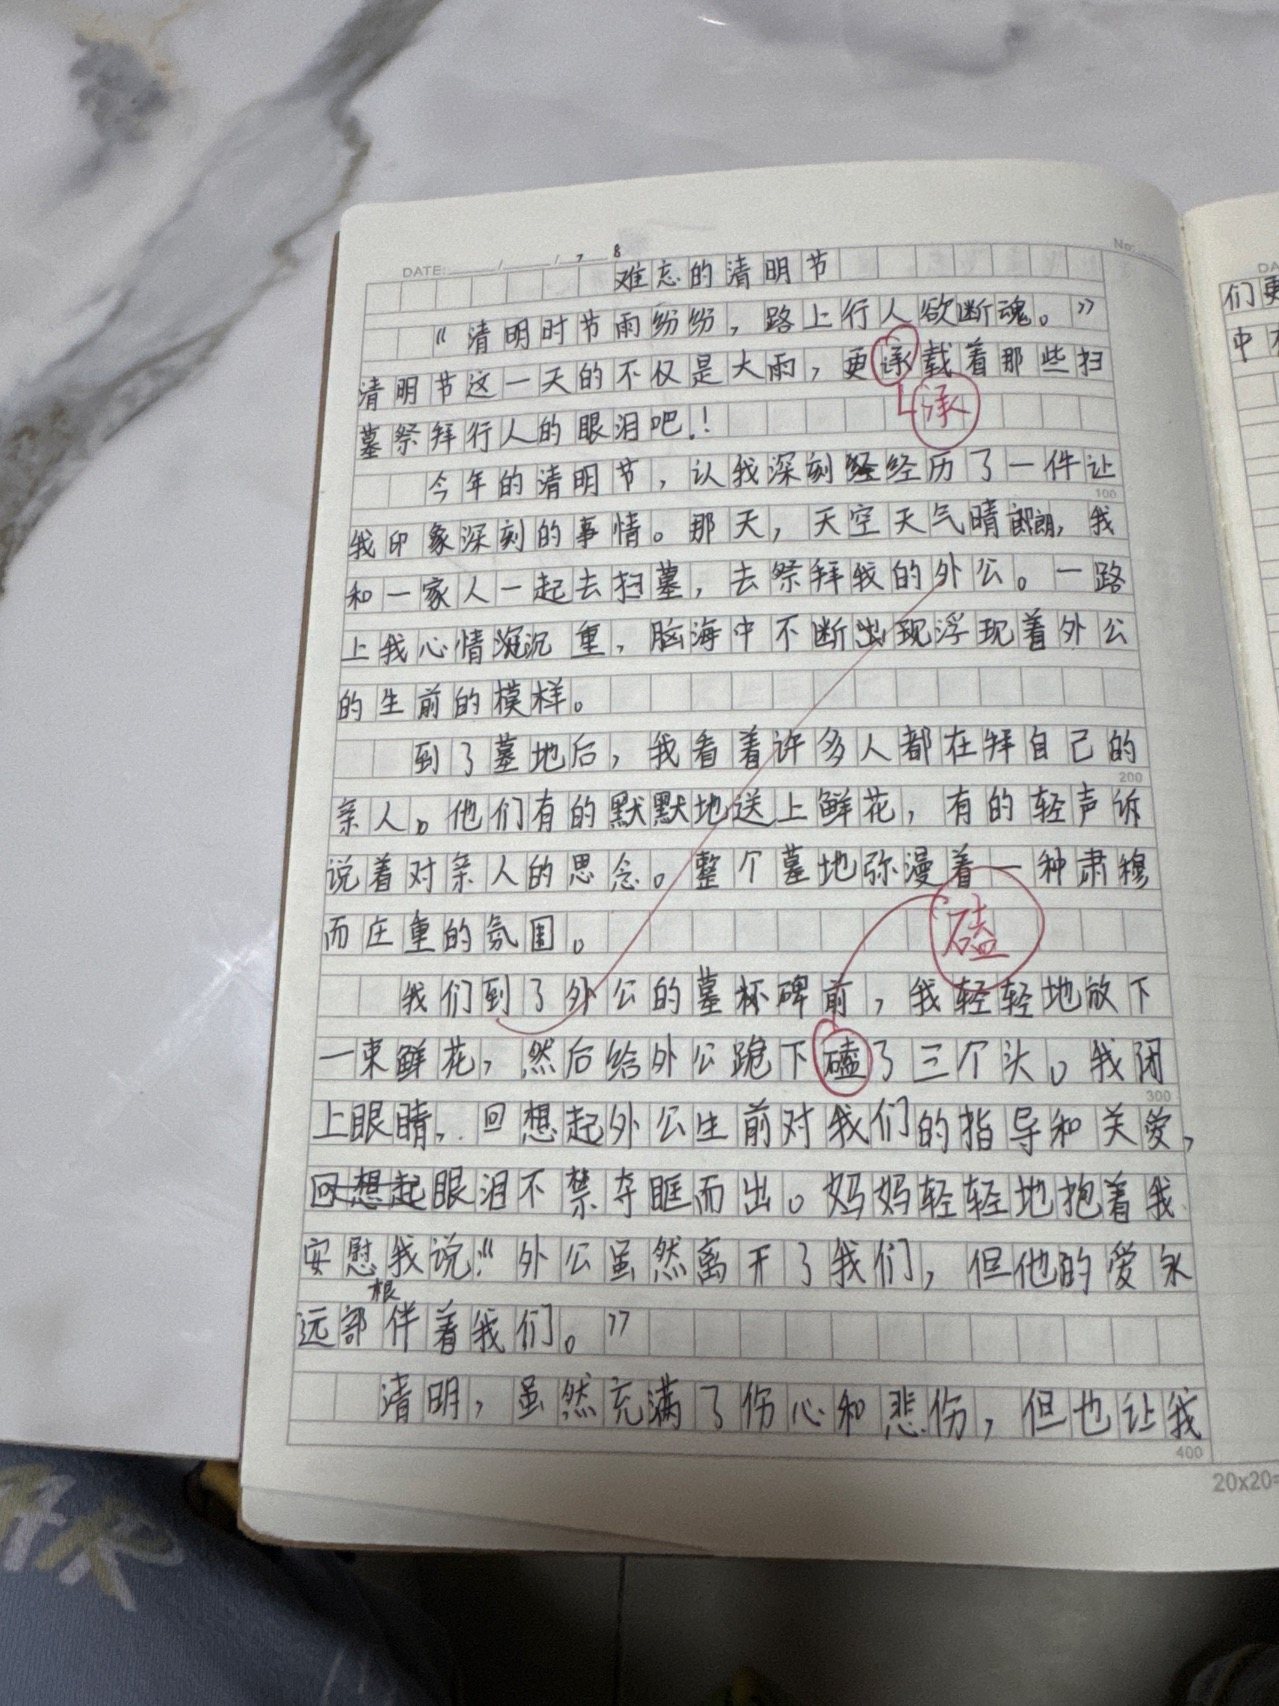 DATE: / / 7 8
No:
难忘的清明节
“清明时节雨纷纷，路上行人欲断魂。”
清明节这一天的不仅是大雨，更承载着那些扫
承
墓祭拜行人的眼泪吧！
今年的清明节，认我深刻经经历了一件让
100
我印象深刻的事情。那天，天空天气晴郎朗，我
和一家人一起去扫墓，去祭拜我的外公。一路
上我心情沉沉重，脑海中不断出现浮现着外公
的生前的模样。
到了墓地后，我看着许多人都在拜自己的
200
亲人。他们有的默默地送上鲜花，有的轻声诉
说着对亲人的思念。整个墓地弥漫着一种肃穆
而庄重的氛围。
磕
我们到了外公的墓杯碑前，我轻轻地放下
一束鲜花，然后给外公跪下磕了三个头。我闭
300
上眼睛，回想起外公生前对我们的指导和关爱，
回想起眼泪不禁夺眶而出。妈妈轻轻地抱着我
安慰我说：“外公虽然离开了我们，但他的爱永
根
远部伴着我们。”
清明，虽然充满了伤心和悲伤，但也让我
400
20x20=
们更
中